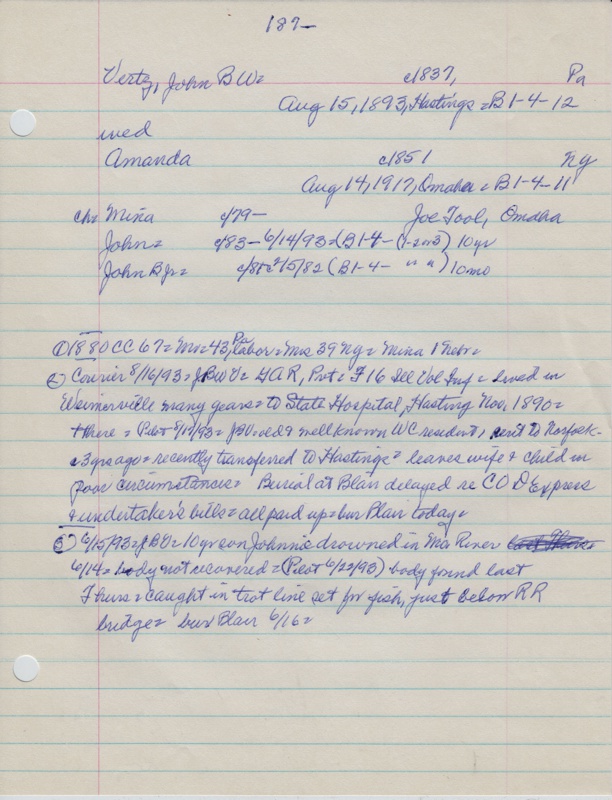 187-
Vertz, John B W= c1837, Pa
Aug 15, 1893, Hastings = B1-4-12
wed
Amanda c1851 Ny
Aug 14, 1917, Omaha = B1-4-11
ch= Mina c/79- Joe Tool, Omaha
John= c/83- 6/14/93=(B1-4- ) 10yr
John B Jr= 2/5/82 (B1-4- " " ) 10mo
① 1880 CC 67= Mr=43, Pa labor= Mrs 39 Ny= Mina 1 Nebr=
② Courier 8/16/93= JBWV= GAR, Pvt= F 16 Ill Vol Inf= lived in
many years= to State Hospital, Hasting Nov. 1890=
there = Pilot 8/ /93= JBV=old & well known WC resident, sent to Norfolk-
c3 yrs ago= recently transferred to Hastings= leaves wife & child in
poor circumstances= Burial at Blair delayed re COD Express
& undertaker's bills= all paid up= bur Blair today=
③ 6/15/93= JBV= 10yr son Johnnie drowned in Mo River
6/14= body not recovered= (Pilot 6/22/93) body found last
Thurs= caught in trot line set for fish, just below RR
bridge= bur Blair 6/16=